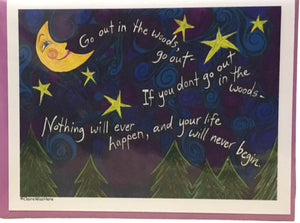 Go out in the woods,
go out-
If you dont go out
in the
woods-
Nothing will ever
happen, and your life
will never begin.
©ClaireWasHere